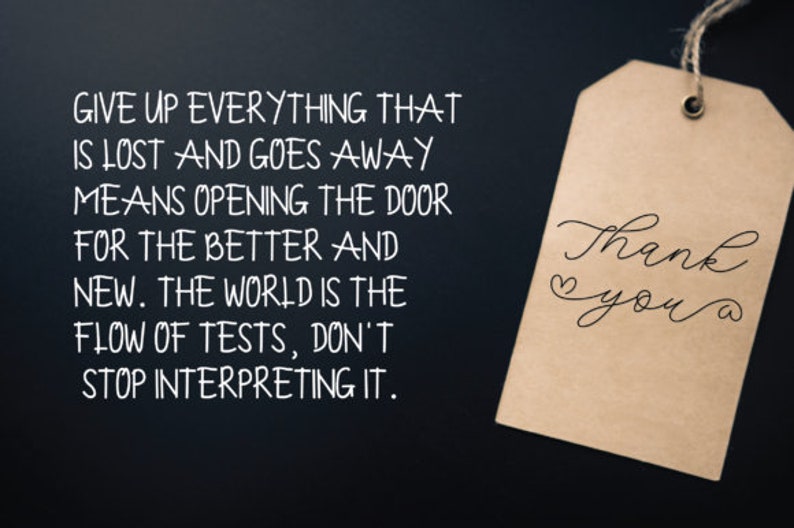 GIVE UP EVERYTHING THAT
IS LOST AND GOES AWAY
MEANS OPENING THE DOOR
FOR THE BETTER AND
NEW. THE WORLD IS THE
FLOW OF TESTS, DON'T
STOP INTERPRETING IT.
Thank
you